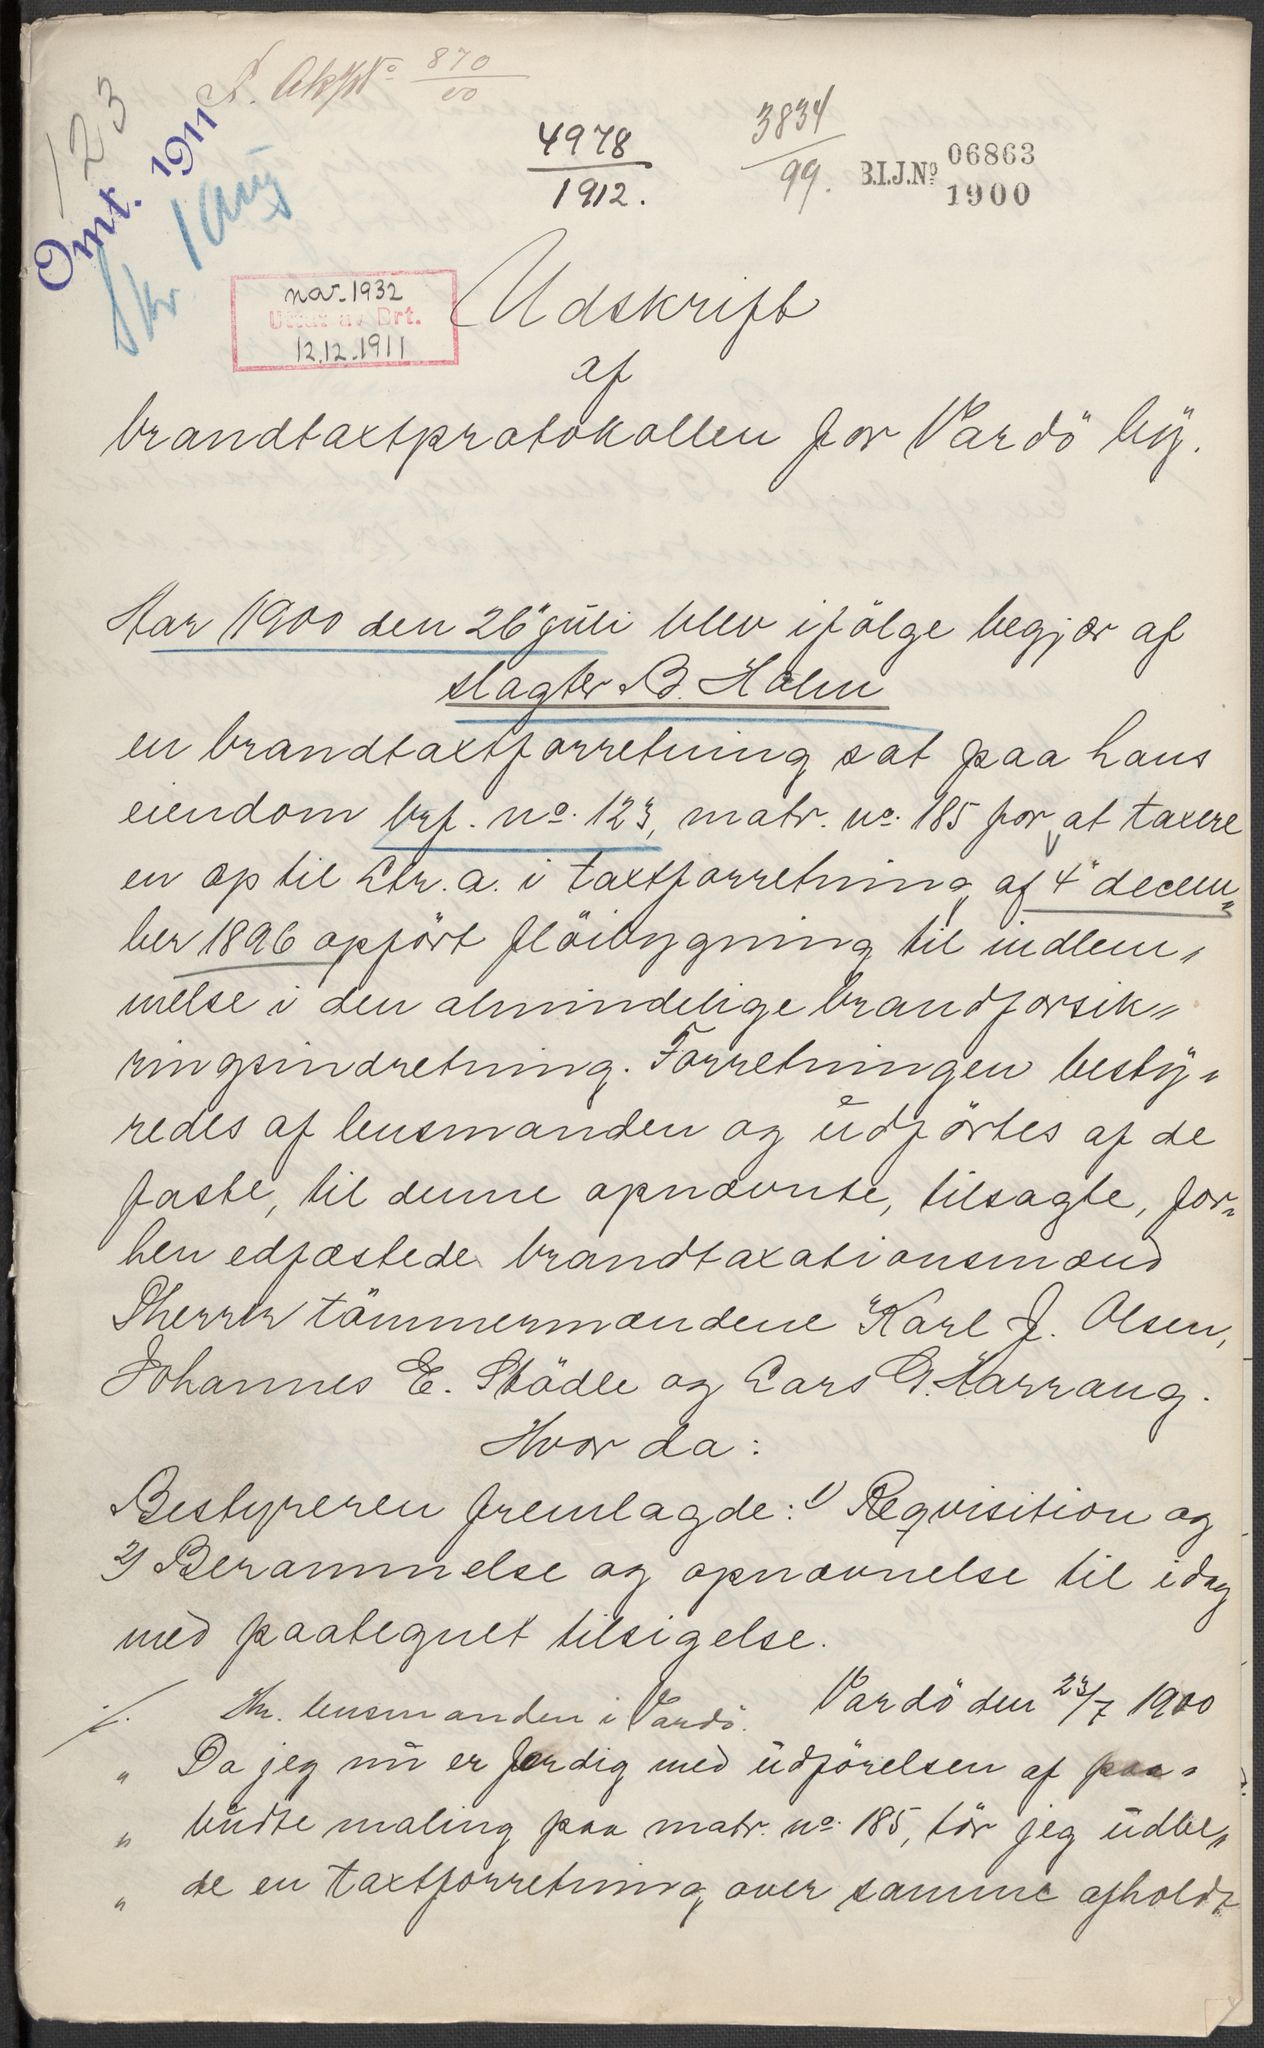 123
Omt. 1911
Skr 1 aug
870
00
4978
1912.
3834
99.
B.I.J.No 06863
1900
nov. 1932
Uttat av Brt.
12.12.1911
Udskrift
af
brandtaxtprotokollen for Vardö by.
Aar 1900 den 26 juli blev ifölge begjær af
slagter B. Holm
en brandtaxtforretning sat paa hans
eiendom brf. no. 123, matr. no. 185 for at taxere
en op til Ltr. a. i taxtforretning af 4 decem„
ber 1896 opfört flöibygning til indlem„
melse i den almindelige brandforsik„
ringsindretning. Forretningen besty„
redes af lensmanden og udförtes af de
faste, til denne opnævnte, tilsagte, for„
hen edfæstede brandtaxationsmænd
Sherrer tömmermændene Karl J. Olsen,
Johannes E. Stödle og Lars G. Harrang.
Hvor da:
Bestyreren fremlagde: 1) Reqvisition og
2) Berammelse og opnævnelse til idag
med paategnet tilsigelse.
./. Hr. lensmanden i Vardö. Vardö den 23/7 1900
„ Da jeg nu er færdig med udförelsen af paa„
„ budte maling paa matr. no. 185, tör jeg udbe„
„ de en taxtforretning over samme afholdt